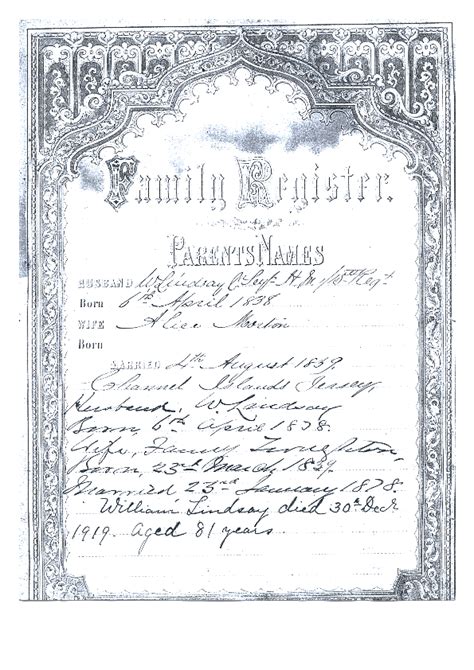 Family Register.
PARENTS NAMES
HUSBAND W. Lindsay C. Sergt H. M. Regt
Born 6th April 1838
WIFE Alice Morton
Born
MARRIED 4th August 1859.
Channel Islands Jersey,
Husband, W. Lindsay
Born, 6th April 1838.
Wife, Fanny
Born, 23rd March, 1839.
Married 23rd January 1878.
William Lindsay died 30th Dec
1919. aged 81 years